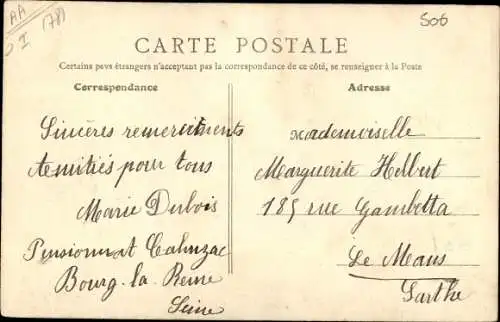 AA
I (78)
506
CARTE POSTALE
Certains pays étrangers n'acceptant pas la correspondance de ce côté, se renseigner à la Poste
Correspondance
Sincères remerciements
Amitiés pour tous
Marie Dubois
Pensionnat Cahuzac
Bourg-la-Reine
Seine
Adresse
Mademoiselle
Marguerite Helbert
185 rue Gambetta
Le Mans
Sarthe